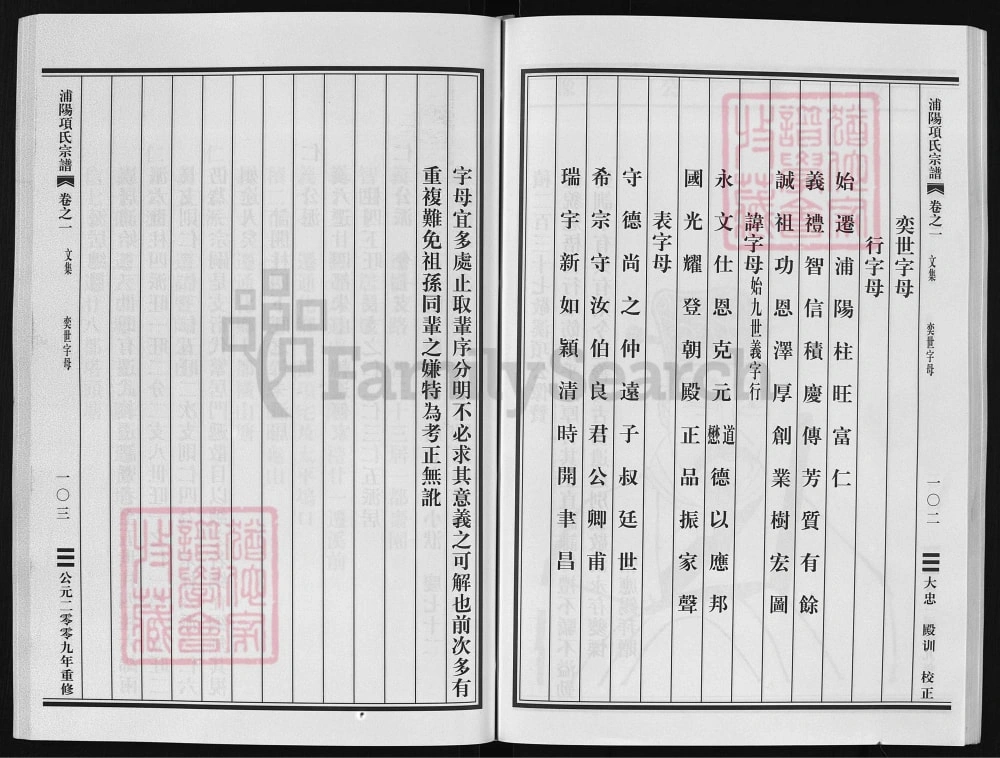 浦陽項氏宗譜 卷之一 文集 奕世字母 一〇二 大忠 殿训 校正
奕世字母
行字母
始遷浦陽柱旺富仁
義禮智信積慶傳芳質有餘
誠祖功恩澤厚創業樹宏圖
諱字母始九世義字行
永文仕恩克元懋道德以應邦
國光耀登朝殿正品振家聲
表字母
守德尚之仲遠子叔廷世
希宗守汝伯良君公卿甫
瑞宇新如穎清時開聿昌
字母宜多處止取輩序分明不必求其意義之可解也前次多有
重複難免祖孫同輩之嫌特為考正無訛
浦陽項氏宗譜 卷之一 文集 奕世字母 一〇三 公元二零零九年重修
FamilySearch